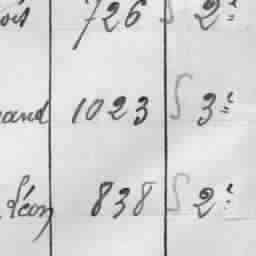 726 S 2e
and 1023 S 3e
Léon 838 S 2e